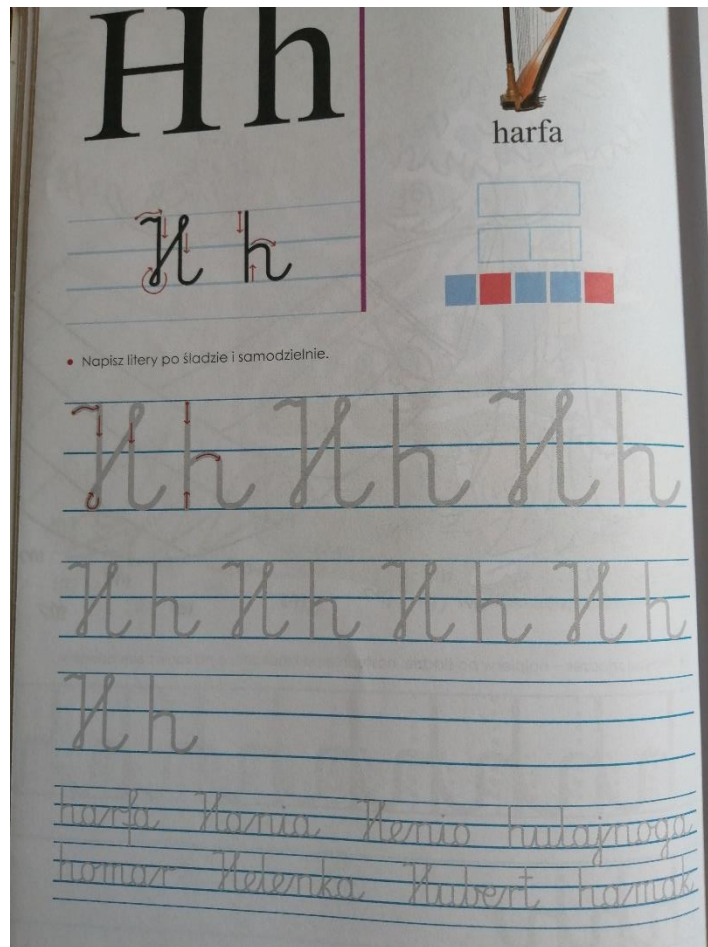 H h
harfa
H h
Napisz litery po śladzie i samodzielnie.
H h H h H h
H h H h H h H h
H h
harfa Hania Henio hulajnoga
homar Helenka Hubert hamak